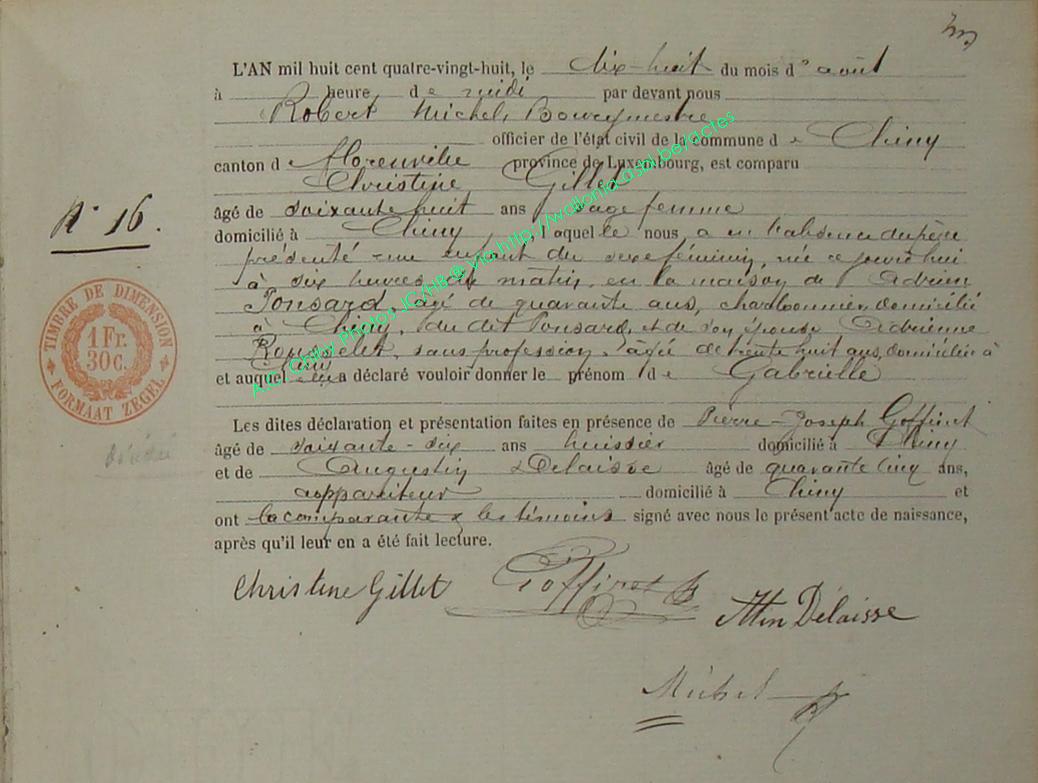 L'AN mil huit cent quatre-vingt-huit, le dix-huit du mois d'août
à heure de midi par devant nous
Robert Michel, Bourgmestre
officier de l'état civil de la commune de Chiny
canton de Florenville province de Luxembourg, est comparu
Christine Gillet
âgé de soixante huit ans sage femme
domicilié à Chiny, laquelle nous a en l'absence du père
présenté une enfant du sexe féminin, née ce jourd'hui
à six heures du matin, en la maison de Adrien
Ponsard, âgé de quarante ans, charbonnier domicilié
à Chiny, du dit Ponsard, et de son épouse Adrienne
Rousselet, sans profession, âgée de trente huit ans, domiciliée à
Chiny
et auquel elle a déclaré vouloir donner le prénom de Gabrielle
Les dites déclaration et présentation faites en présence de Pierre-Joseph Goffinet
âgé de soixante-six ans huissier domicilié à Chiny
et de Augustin Delaisse âgé de quarante cinq ans,
appariteur domicilié à Chiny et
ont la comparante & les témoins signé avec nous le présent acte de naissance,
après qu'il leur en a été fait lecture.
Christine Gillet Goffinet Attin Délaisse
Michel
N° 16.
TIMBRE DE DIMENSION
1 Fr.
30c.
FORMAAT ZEGEL
Chiny Photos JC/HB @ via http://wallonia-asbl.be/actes